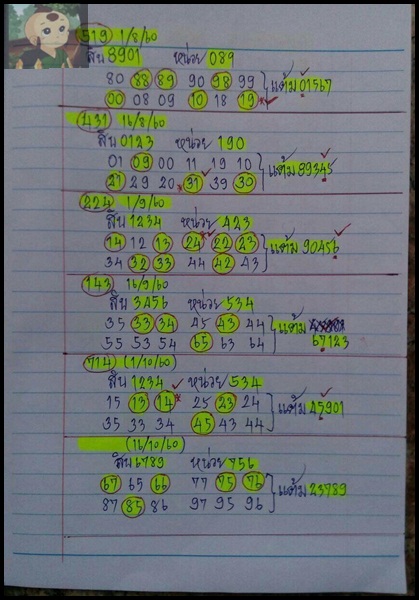 519 1/8/60
สิบ 8901 หน่วย 089
80 88 89 90 98 99
00 08 09 10 18 19
แต้ม 01567
431 16/8/60
สิบ 0123 หน่วย 190
01 09 00 11 19 10
21 29 20 31 39 30
แต้ม 89345
224 1/9/60
สิบ 1234 หน่วย 423
14 12 13 24 22 23
34 32 33 44 42 43
แต้ม 90456
143 16/9/60
สิบ 3456 หน่วย 534
35 33 34 45 43 44
55 53 54 65 63 64
แต้ม
67123
714 (1/10/60)
สิบ 1234 หน่วย 534
15 13 14 25 23 24
35 33 34 45 43 44
แต้ม 45901
(16/10/60)
สิบ 6789 หน่วย 756
67 65 66 77 75 76
87 85 86 97 95 96
แต้ม 23789